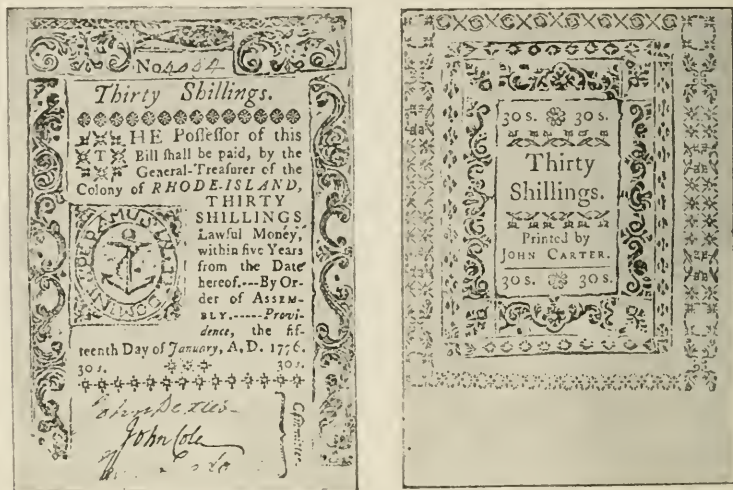 No 4064
Thirty Shillings.
THE Poſſeſſor of this
Bill ſhall be paid, by the
General-Treaſurer of the
Colony of RHODE-ISLAND,
THIRTY
SHILLINGS
Lawful Money,
within five Years
from the Date
hereof.---By Or-
der of ASSEM-
BLY.-----Provi-
dence, the fif-
teenth Day of January, A, D. 1776.
30 s. 30 s.
John Dexter
John Cole
Committee.
30 s. 30 s.
Thirty
Shillings.
Printed by
JOHN CARTER.
30 s. 30 s.